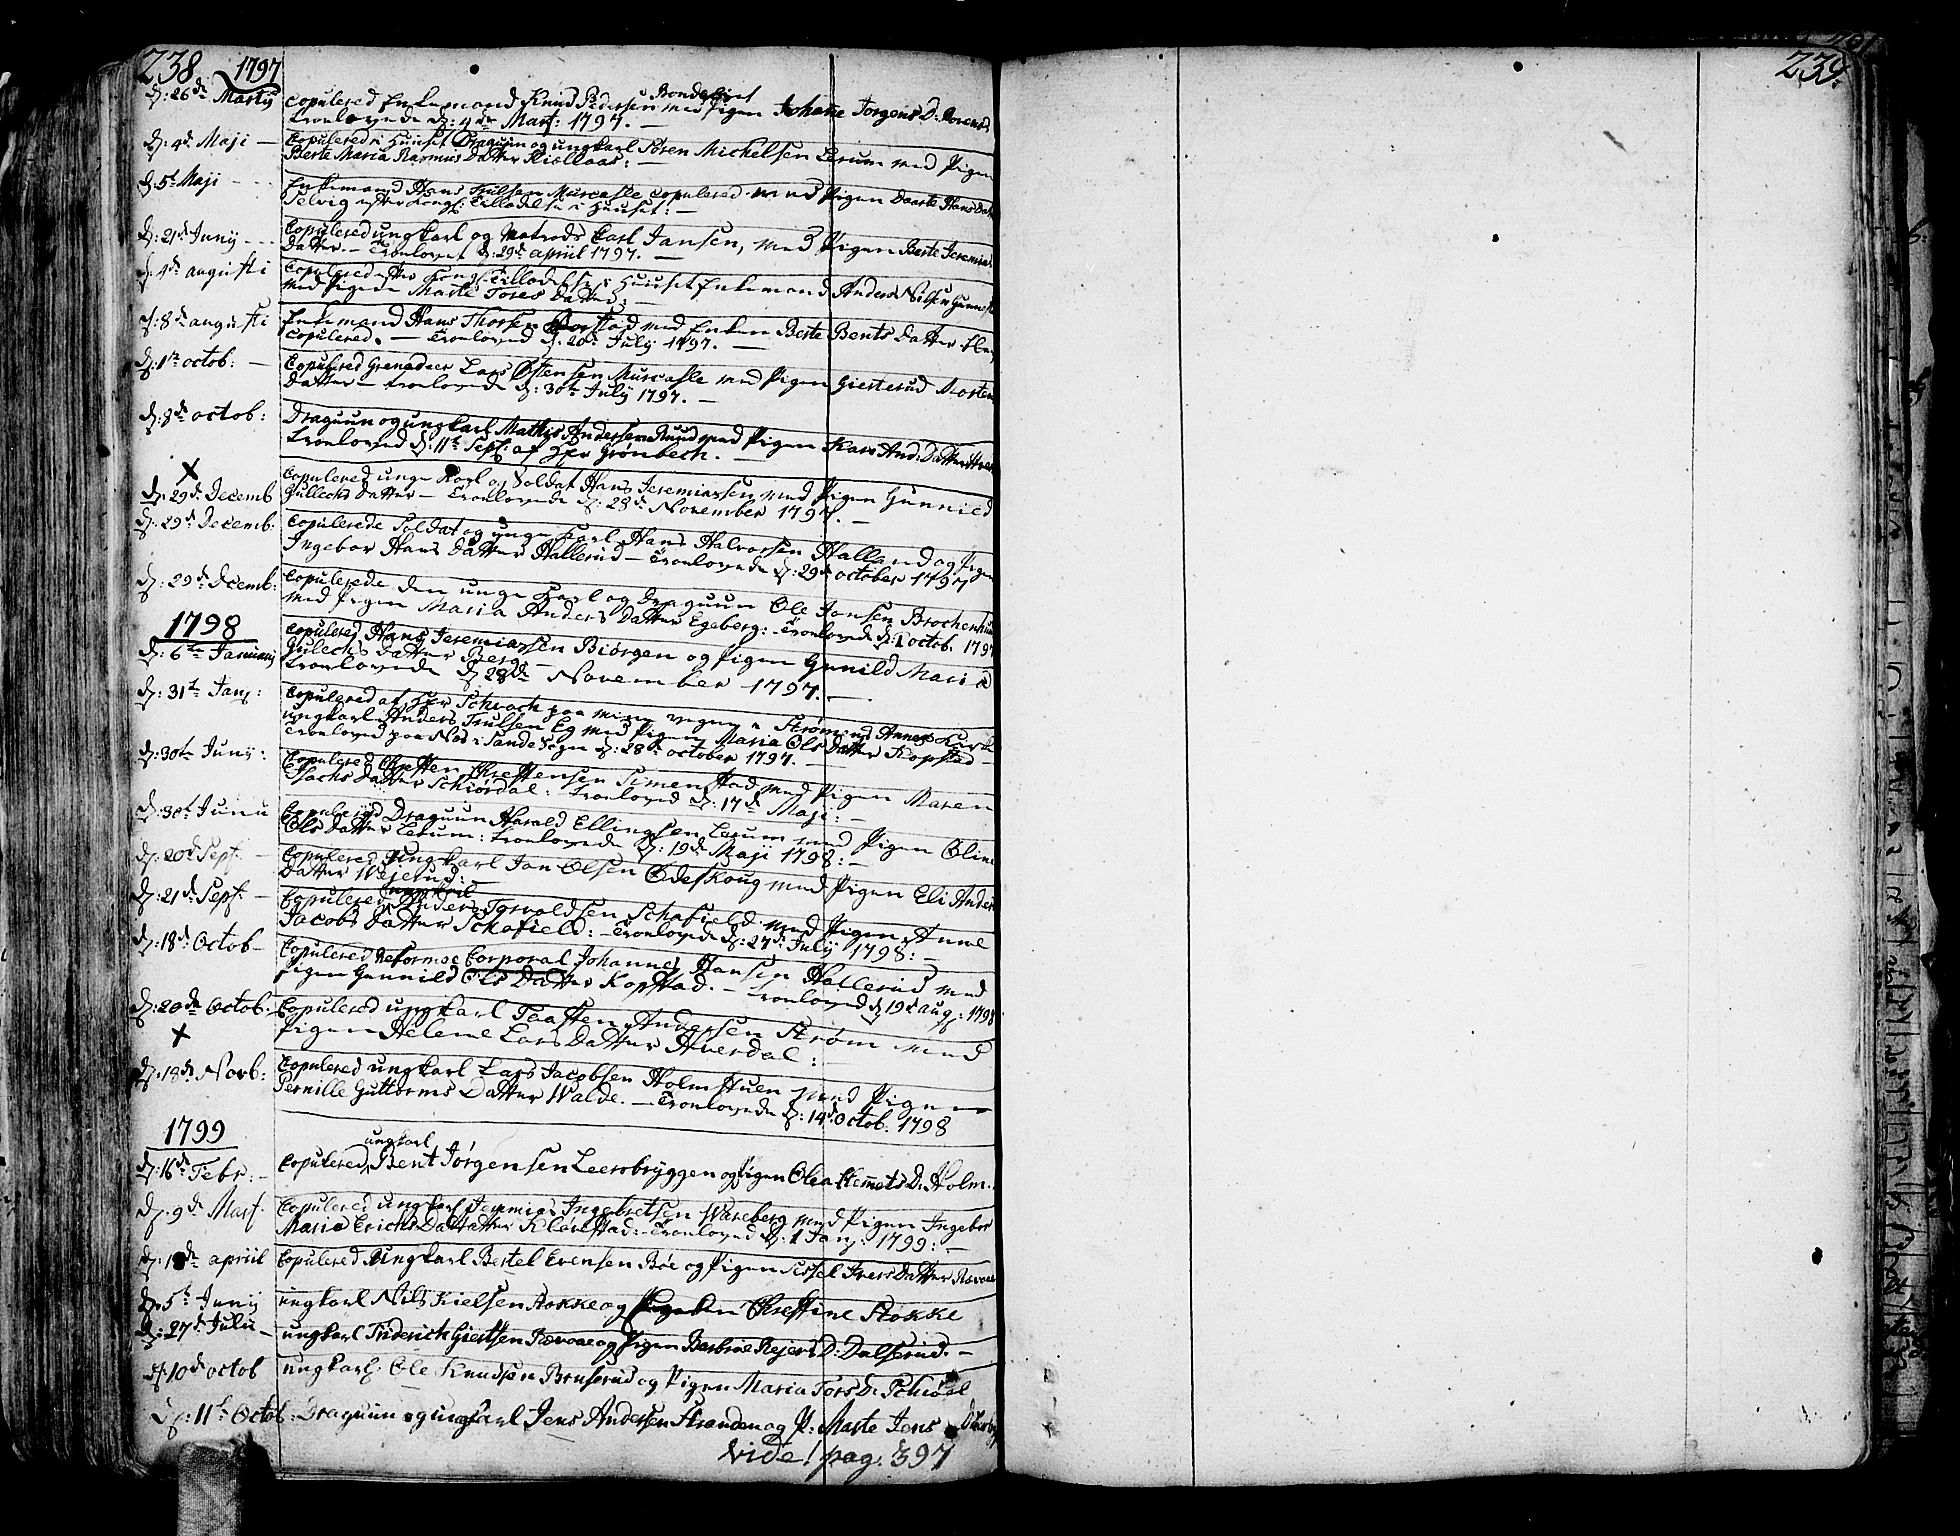 238 1797
d: 26de Martij Copulered Enkemand Knud Pedersen Bondelivet med Pigen Johane Jorgens D:
Troelovede d: 4de Mart: 1797. —
d: 4d Maji — Copulered i Huuset Draguun og ungkarl Søren Michelsen Lerum med Pigen
Berte Maria Rasmus Datter Kiøllaas: —
d 5t Maji - - - Enkemand Hans Trulsen Murcasle copulered med Pigen Daarte Hans Dat
Selvig efter Kongl: Tilladelse i Huuset: —
d: 21d Junÿ - - - Copulered ungkarl og Matrods Carl Jansen, med Pigen Berte Jeremias
Datter. — Troelovet d: 29d apriil 1797. —
d: 4d augusti Copulered efter Kongl: Tilladelse i Huuset Enkemand Anders Nilsen
med Pigen Marte Tores Datter: —
d: 8d augusti Enkemand Hans Thorsen med Enken Berte Bents Datter
Copulered. — Troeloved d. 20d July 1797. —
d: 1te octob: — Copulered Grenadeer Lars Østensen Murcasle med Pigen Giesterud Morten
Datter — troelovede d: 30te July 1797. —
d: 8d octob: Draguun og ungkarl Mathys Andersen Ruud med Pigen Kari And: Datter
troeloved d. 11te Sept: af Hr Grønbech. —
X
d. 29d. Decemb Copulered unge Karl og Soldat Hans Jeremiassen med Pigen Gunnild
Gullechs Datter — Troelovede d. 28d November 1797. —
d. 29d Decemb: Copulerede Soldat og unge Karl Hans Halvorsen Halland og Pigen
Ingebor Hans Datter Hallerud — Troelovede d: 29d october 1797
d: 29d Dcemb: Copulerede den unge Karl og Draguun Ole Jansen
med Pigen Maria Anders Datter Egeberg: Troelovede d: 1 octob. 1797
1798
d: 6te Januarij Copulered Hans Jeremiassen Biörgen og Pigen Gunild Maria
Gulechs Datter Berg —
troelovede d 28de November 1797. —
d: 31te Jan: Copulered af Hr Schwach paa mine vegne i Strømmens Annex Kirke
ungkarl Anders Trulsen Eg med Pigen Maria Ols Datter Kopstad —
Troeloved paa Nes i Sande Sogn d: 28d october 1797. —
d: 30te Junÿ: Copulered Chresten Chrestensen Simenstad med Pigen Maren
Isachs Datter Schiørdal: Troeloved d: 17d Maji: —
d: 30te Junii Copulered Draguun Harald Ellingsen Lerum med Pigen Oline
Ols Datter Lerum: troelovede d: 19d Maji 1798: —
d: 20d Sept. — Copulered ungkarl Jan Olsen Ødeskoug med Pigen Eli Anders
Datter Wajerud: —
d: 21d Sept. — Copulered ungkarl Anders Torvaldsen Schafield med Pigen Anne
Jacobs Datter Schafield: — Troelovede d: 27d Julij 1798: —
d: 18d. Octob — Copulered Reforme Corporal Johannes Hansen Hallerud med
Pigen Gunnild Ols Datter Kopstad. — troeloved d 19d aug: 1798
d: 20de Octob: Copulered ungkarl Taasten Andersen Strøm med
X Pigen Helene Lars Datter Hverdal:
d: 18d Novb: Copulered ungkarl Lars Jacobsen Holmstuen med Pigen
Pernille Guttorms Datter Walde. — Troelovede d: 14d Octob. 1798
1799
d: 16d Febr: - Copulered ungkarl Bent Jørgensen Leersbryggen og Pigen Olea Klemmets D: Holm.
d: 9d Mart: Copulered ungkarl Jeremias Ingebretsen Wareberg med Pigen Ingebor
Maria Erichs Datter Kleivstad: Troeloved d. 1 Jan: 1799: —
d: 1de apriil Copulered ungkarl Bertel Evensen Bøe og Pigen Sissel Ivers Datter
d. 5t Junÿ ungkarl Nils Kielsen Stokke og Chrestine Stokke
d: 27d Julii — ungkarl Friderich Giertsen Rævaae og Pigen Barbroe Rejers D: Dalserud. —
d. 10d octob ungkarl: Ole Knudsen Bruserud og Pigen Maria Tors D. Schiøsl
d: 11te Octob: Draguun og ungkarl Jens Andersen Stranden og P: Marte Jens
vide! pag. 397
239.